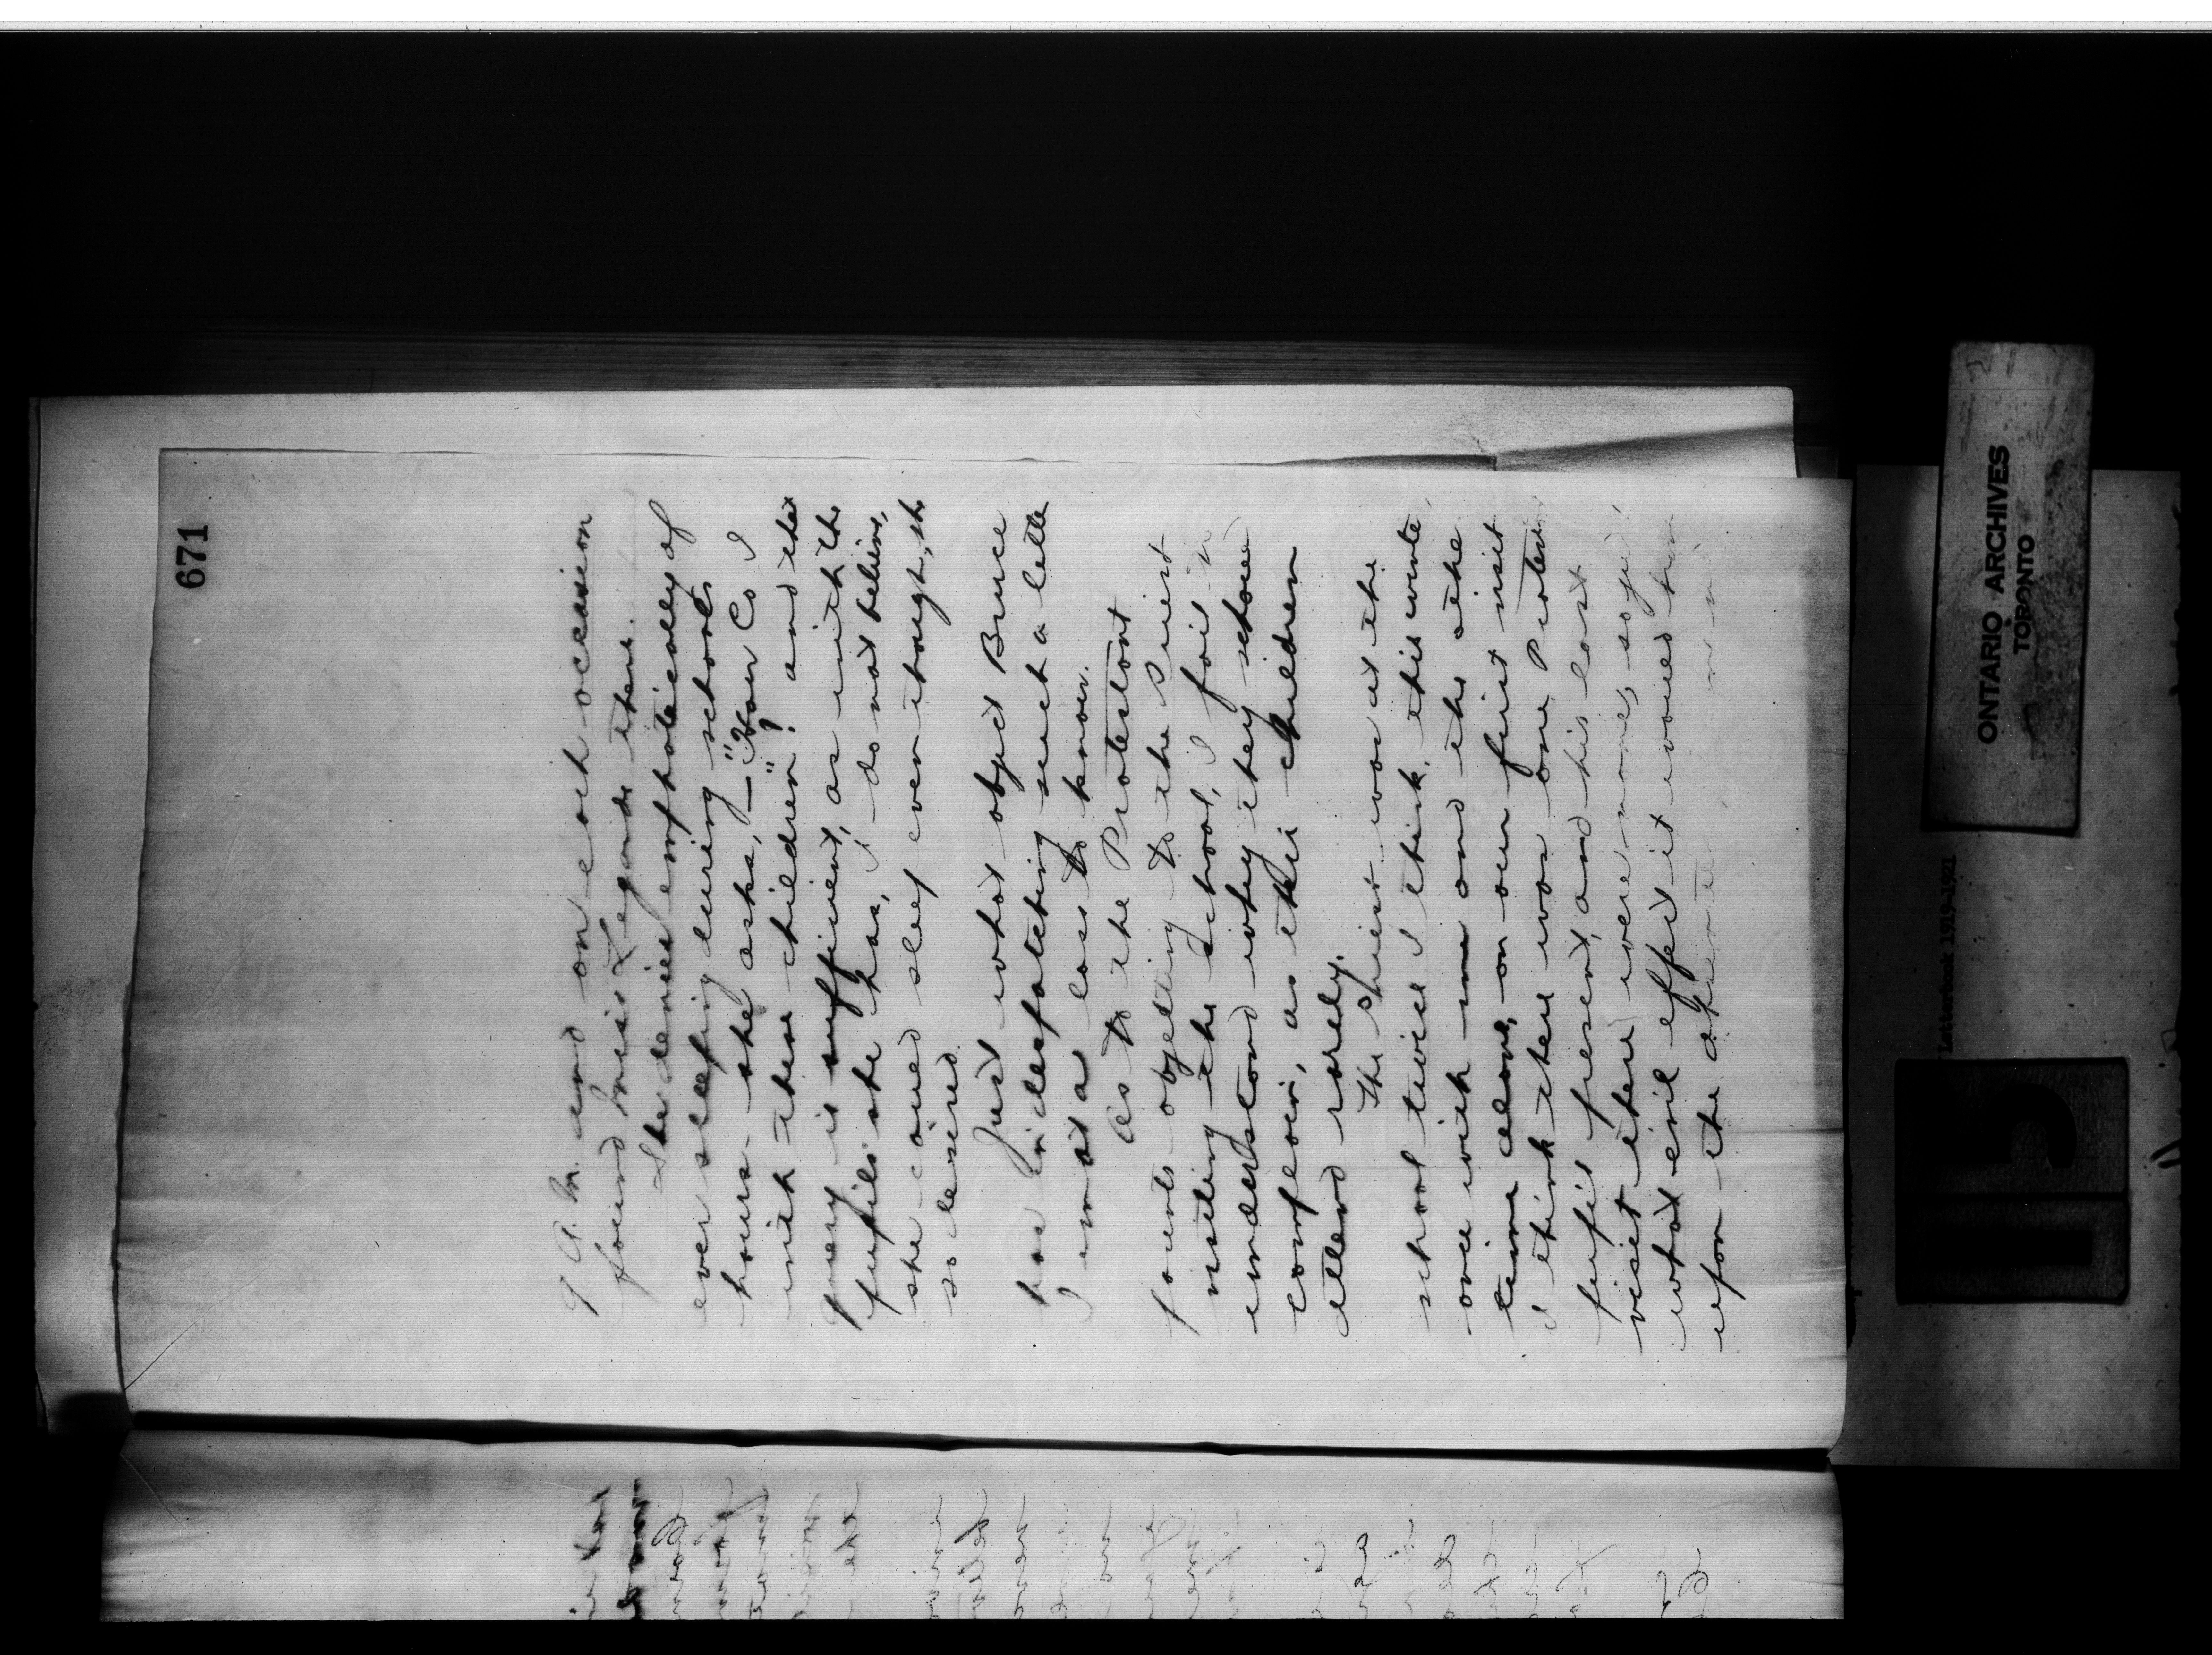 671
9 A. M. and on each occasion
found Miss Legarde there.
She denies emphatically of
ever sleeping during schools
hours. she asks, "How Co I
with these children"? and that
query is sufficient, as with the
pupils she has, I do not believe,
she coued sleep even though, she
so desired.
Just what object Bruce
has in despatching such a lette
I am at a loss to know.
As to the Protestant
parents objecting to the Priest
visiting the School, I fail to
understand why they shoued
complain, as their children
attend rarely.
The Priest was at the
school twice I think, this winte
once with me and the othe
time alone, on our first visit
I think there was one Protest
pupil present, and his last
visit there were none, so
what evil effect it woued
upon the
ONTARIO ARCHIVES
TORONTO
Letterbook 1919-1921